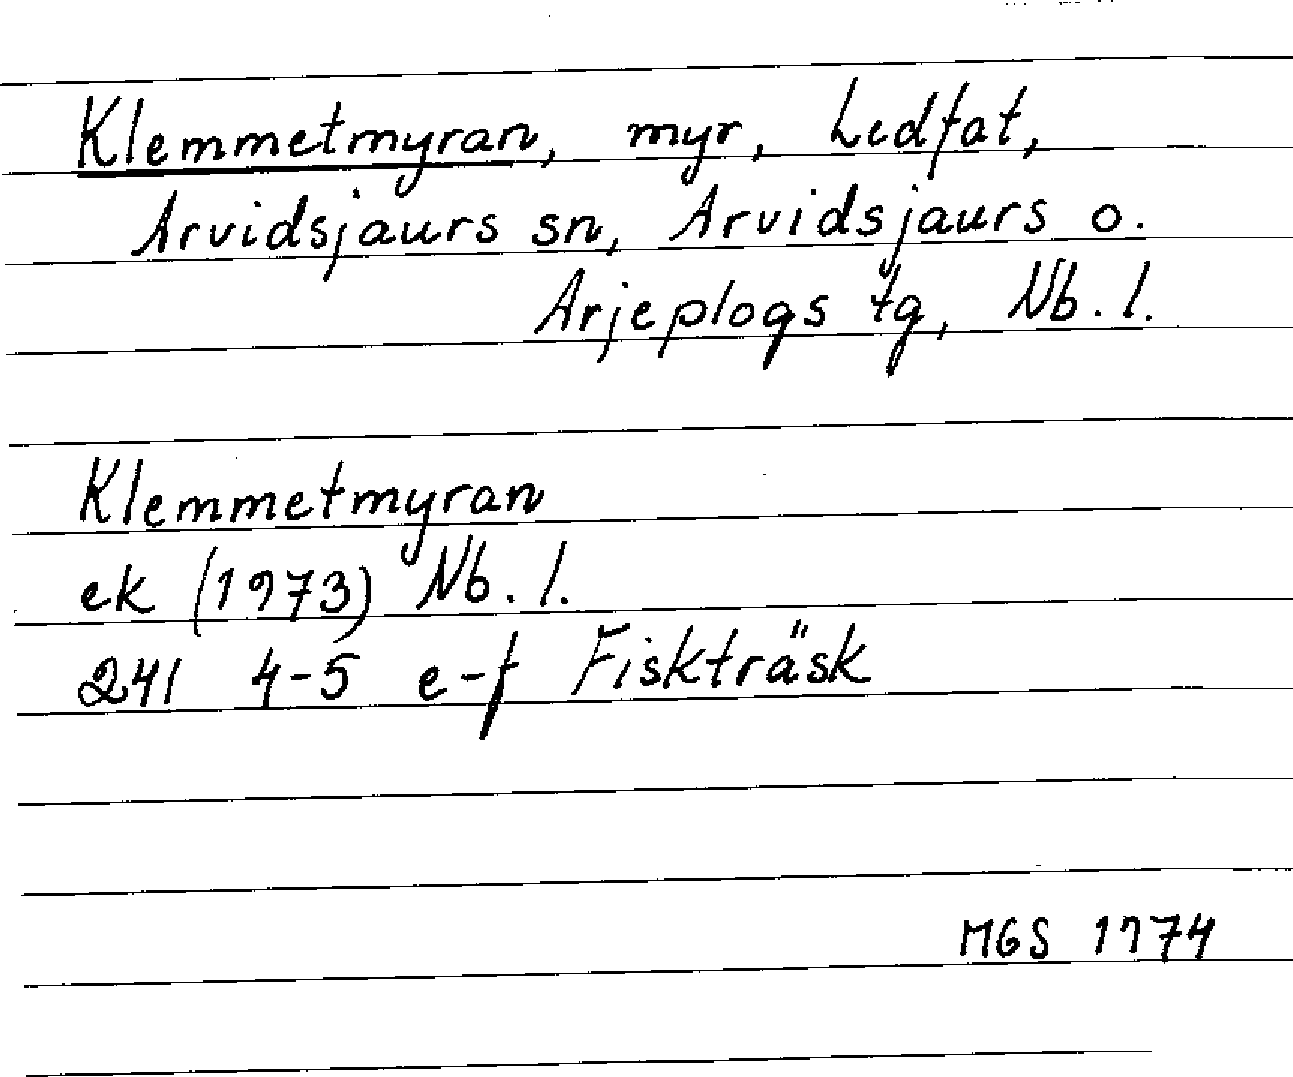 Klemmetmyran, myr, Ledfat,
Arvidsjaurs sn, Arvidsjaurs o.
Arjeplogs tg, Nb. l.
Klemmetmyran
ek (1973) Nb. l.
241 4-5 e-f Fiskträsk
MGS 1974